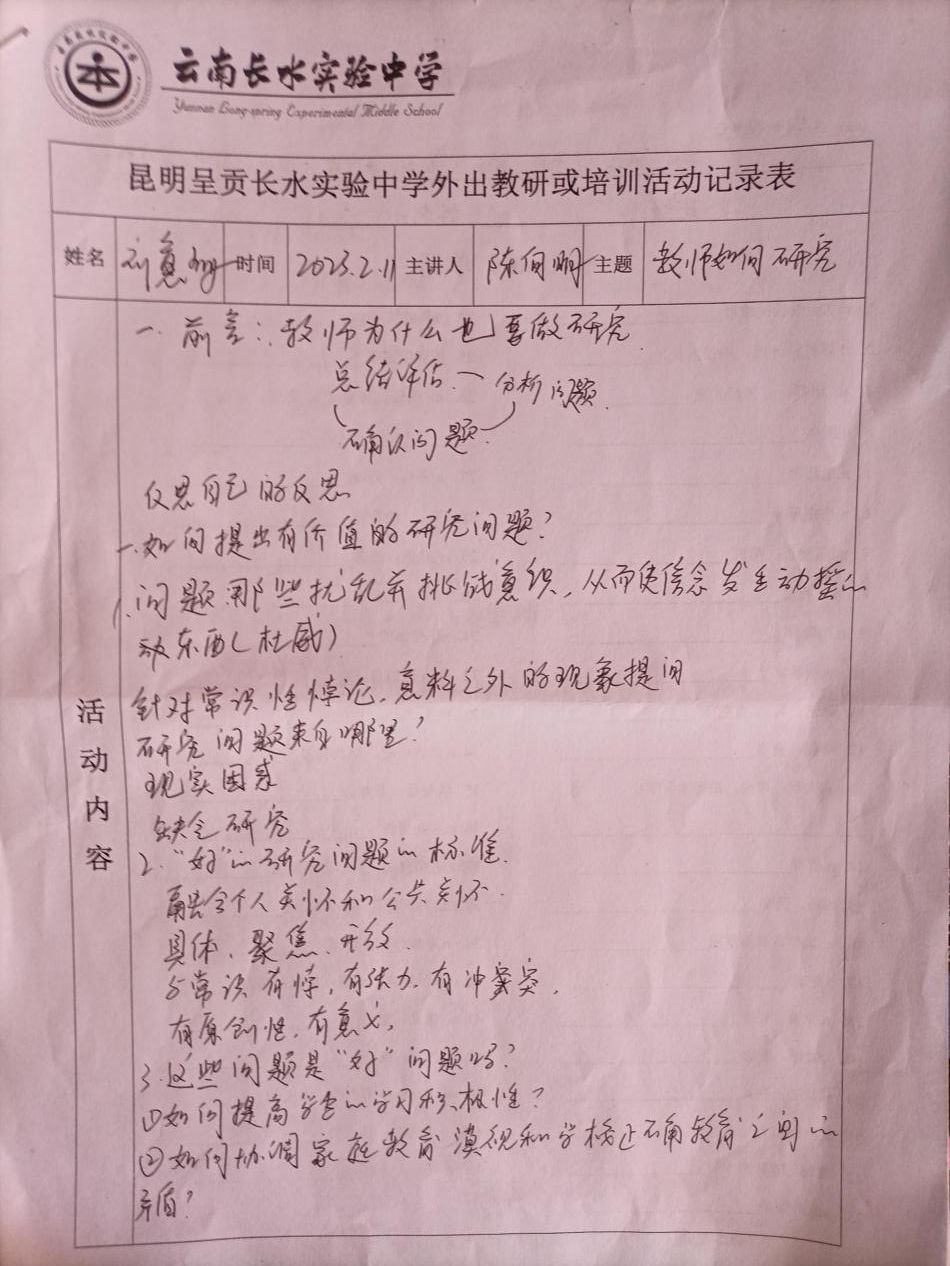 云南长水实验中学
Yunnan Long-spring Experimental Middle School
昆明呈贡长水实验中学外出教研或培训活动记录表
姓名 刘意 时间 2023.2.11 主讲人 陈向明 主题 教师如何研究
活动内容
一、前言:教师为什么也要做研究
总结评估 — 分析问题
确认问题
反思自己的反思
一、如何提出有价值的研究问题?
1.问题那些扰乱并挑战意识,从而使信念发生动摇的
东西(杜威)
针对常识性悖论,意料之外的现象提问
研究问题来自哪里?
现实因素
缺乏研究
2."好"的研究问题的标准
融合个人关怀和公共关怀.
具体、聚焦、开放.
与常识有悖,有张力,有冲突,
有原创性,有意义,
3.这些问题是"好"问题吗?
①如何提高学生的学习积极性?
②如何协调家庭教育漠视和学校正确教育之间的
矛盾?